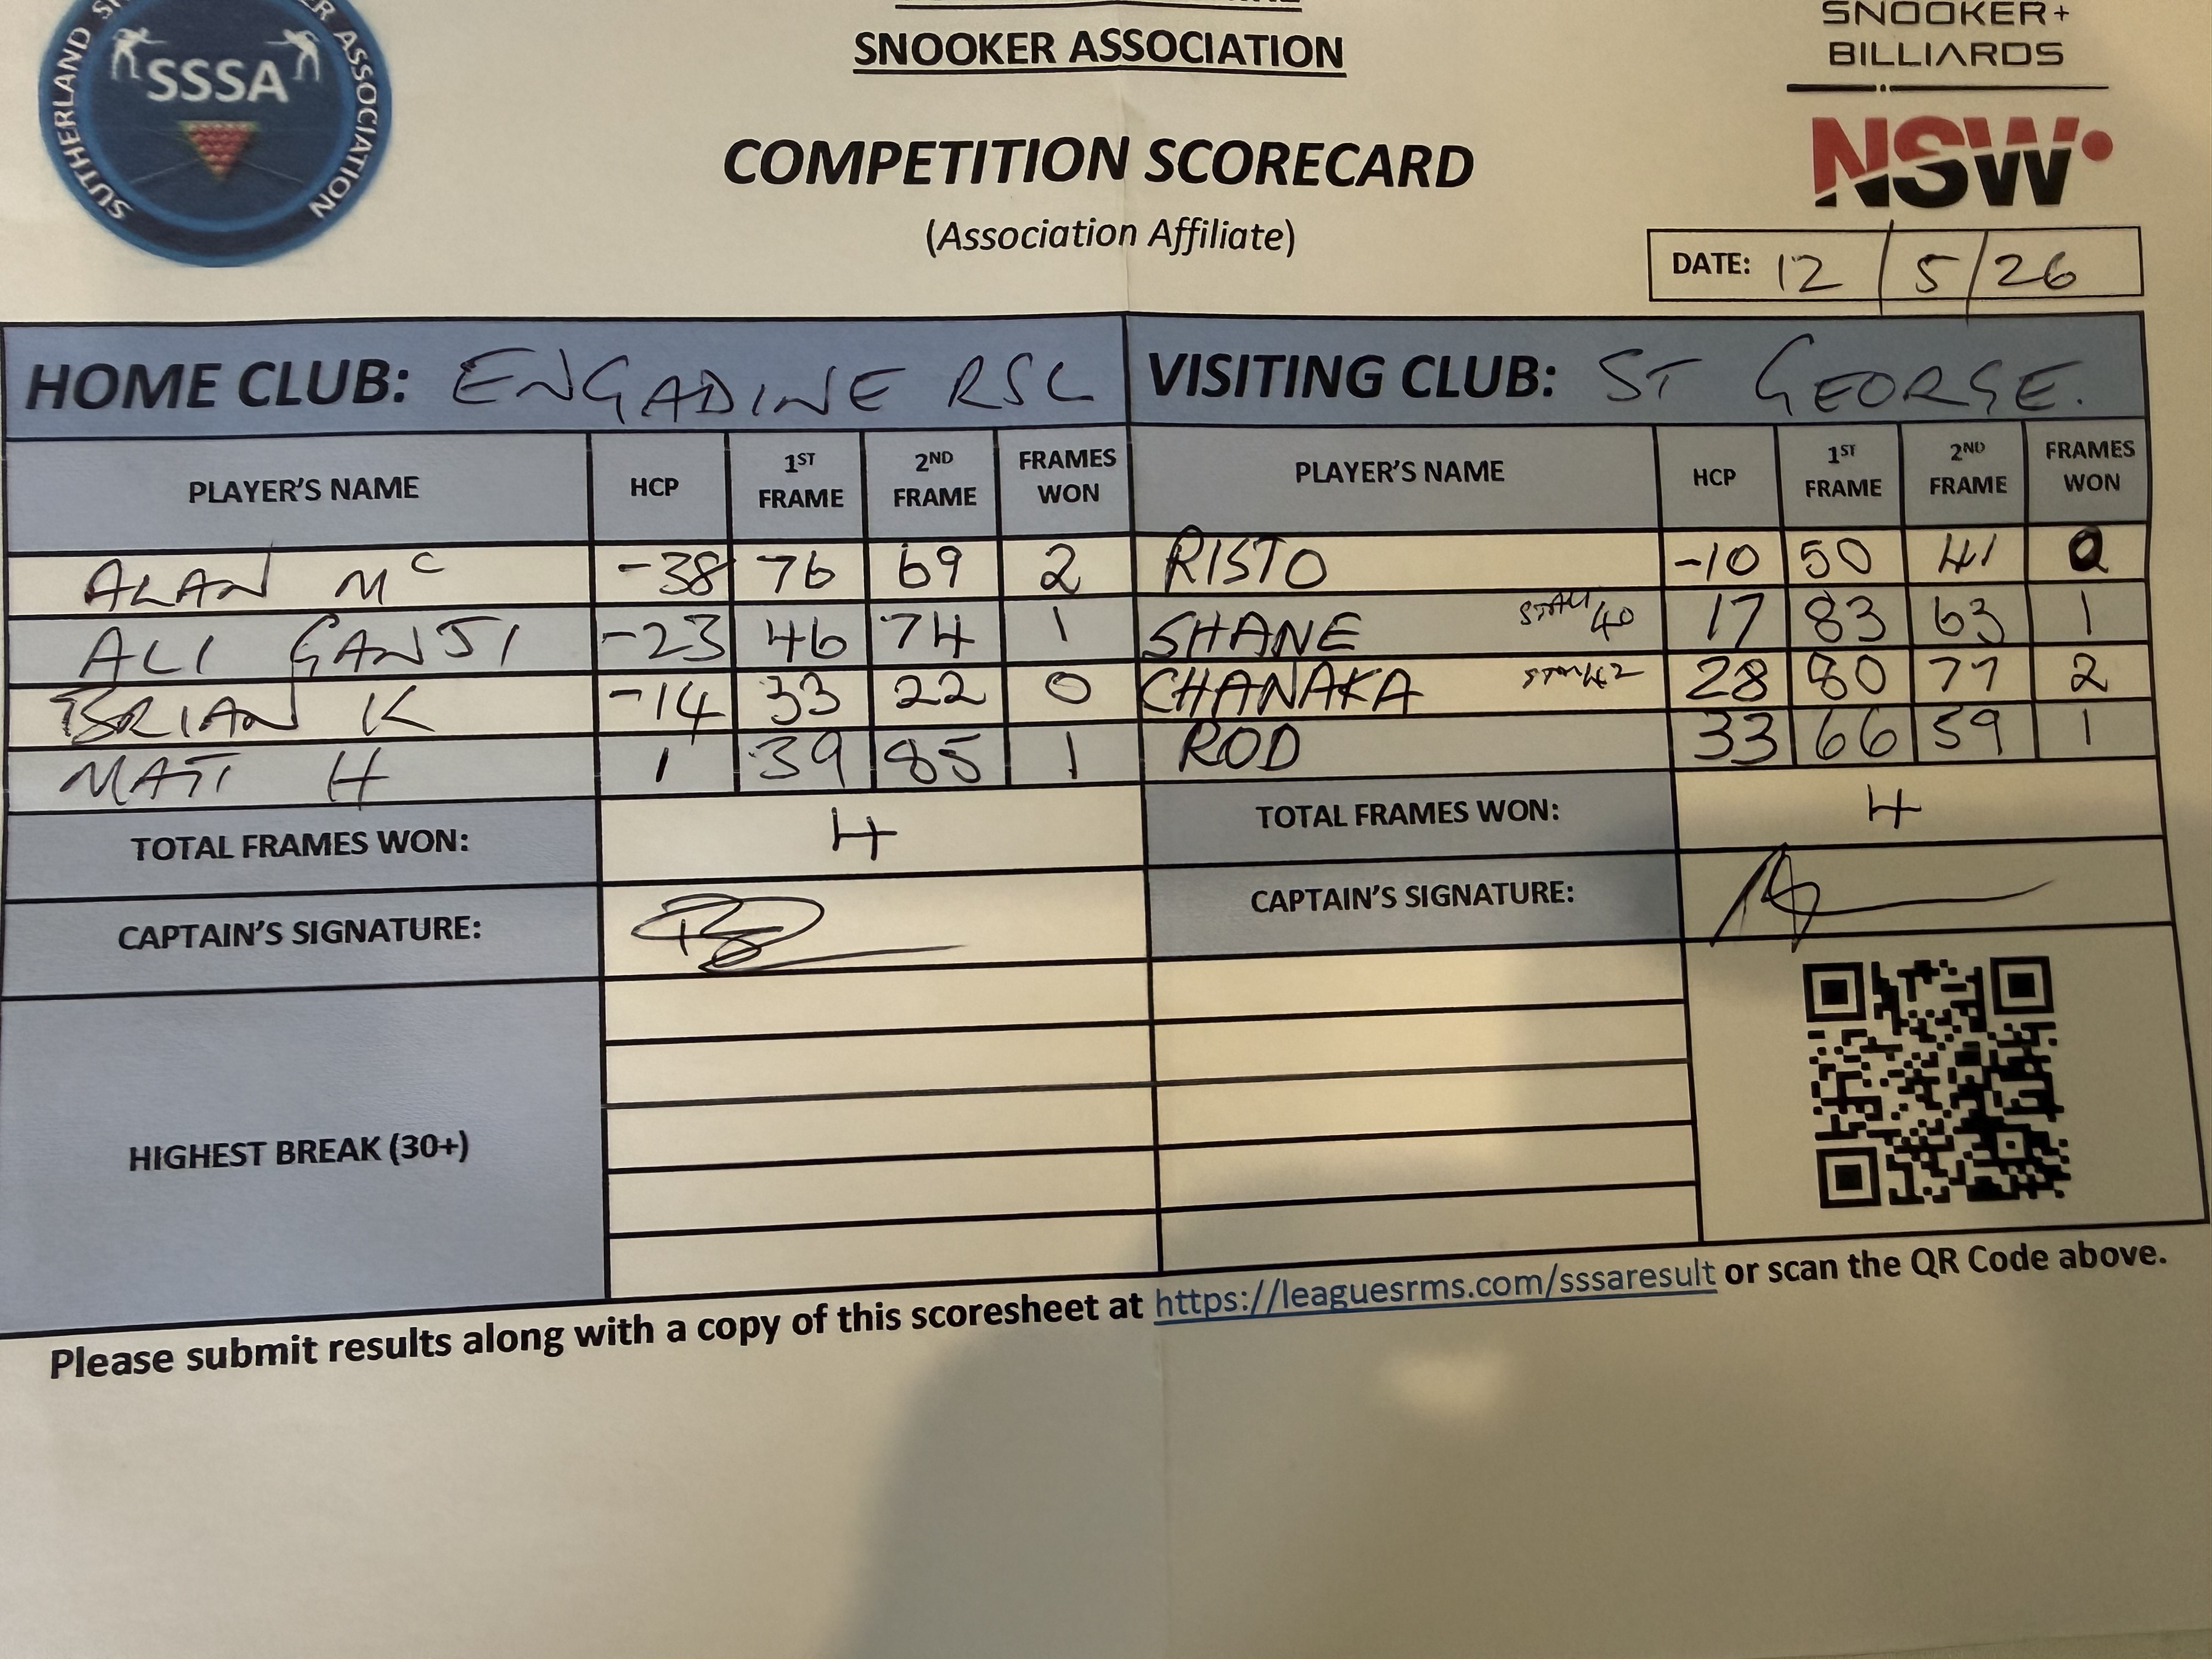 SUTHERLAND SH ER ASSOCIATION
SSSA
SNOOKER ASSOCIATION
COMPETITION SCORECARD
(Association Affiliate)
SNOOKER+
BILLIARDS
NSW
DATE: 12 / 5 / 26
HOME CLUB: ENGADINE RSL VISITING CLUB: ST GEORGE.
PLAYER'S NAME HCP 1ST FRAME 2ND FRAME FRAMES WON PLAYER'S NAME HCP 1ST FRAME 2ND FRAME FRAMES WON
ALAN Mc -38 76 69 2 RISTO -10 50 41 0
ALI GANJI -23 46 74 1 SHANE START 40 17 83 63 1
BRIAN K -14 33 22 0 CHANAKA START 42 28 80 77 2
MATT H 1 39 85 1 ROD 33 66 59 1
TOTAL FRAMES WON: 4 TOTAL FRAMES WON: 4
CAPTAIN'S SIGNATURE: CAPTAIN'S SIGNATURE:
HIGHEST BREAK (30+)
Please submit results along with a copy of this scoresheet at https://leaguesrms.com/sssaresult or scan the QR Code above.